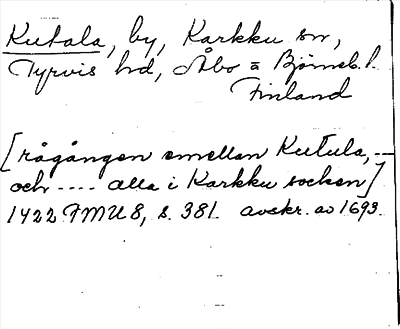 Kutala, by, Karkku sn,
Tyrvis hd, Åbo o Björneb. l.
Finland
[rågången emellan Kutula, —
och .... alla i Karkku socken]
1422 FMU 8, s. 381. avskr. av 1693.